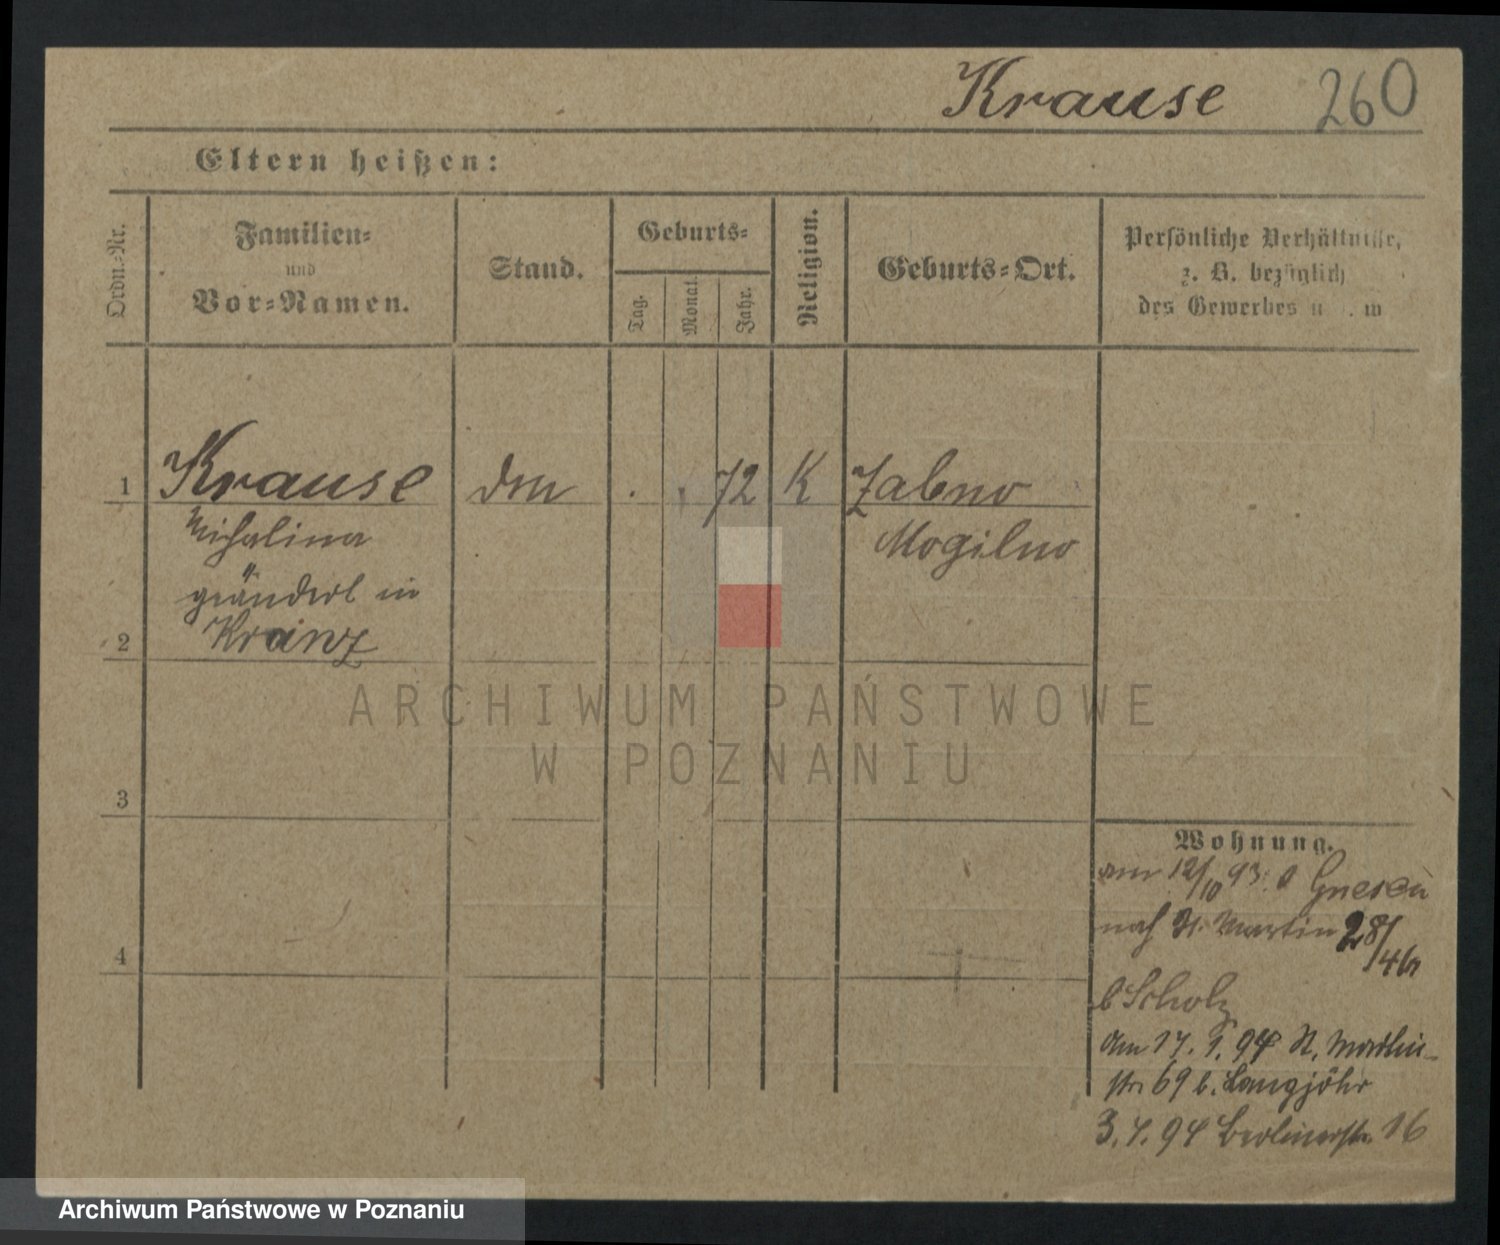 Krause 260
Eltern heißen:
Ordn.-Nr.
Familien-
und
Vor-Namen.
Stand.
Geburts-
Tag.
Monat.
Jahr.
Religion.
Geburts-Ort.
Persönliche Verhältnisse,
z. B. bezüglich
des Gewerbes u. s. w
1 Krause . . 72 K Zabno
Michalina Mogilno
geändert in
2 Krainz
ARCHIWUM PAŃSTWOWE
W POZNANIU
3
Wohnung.
am 12/10 93. Gnesen
nach St. Martin 28/
4
b Scholz
am 17. 1. 94 St. Martin-
str 69 b. Langjöhr
3. 4. 94 Berlinerstr. 16
Archiwum Państwowe w Poznaniu